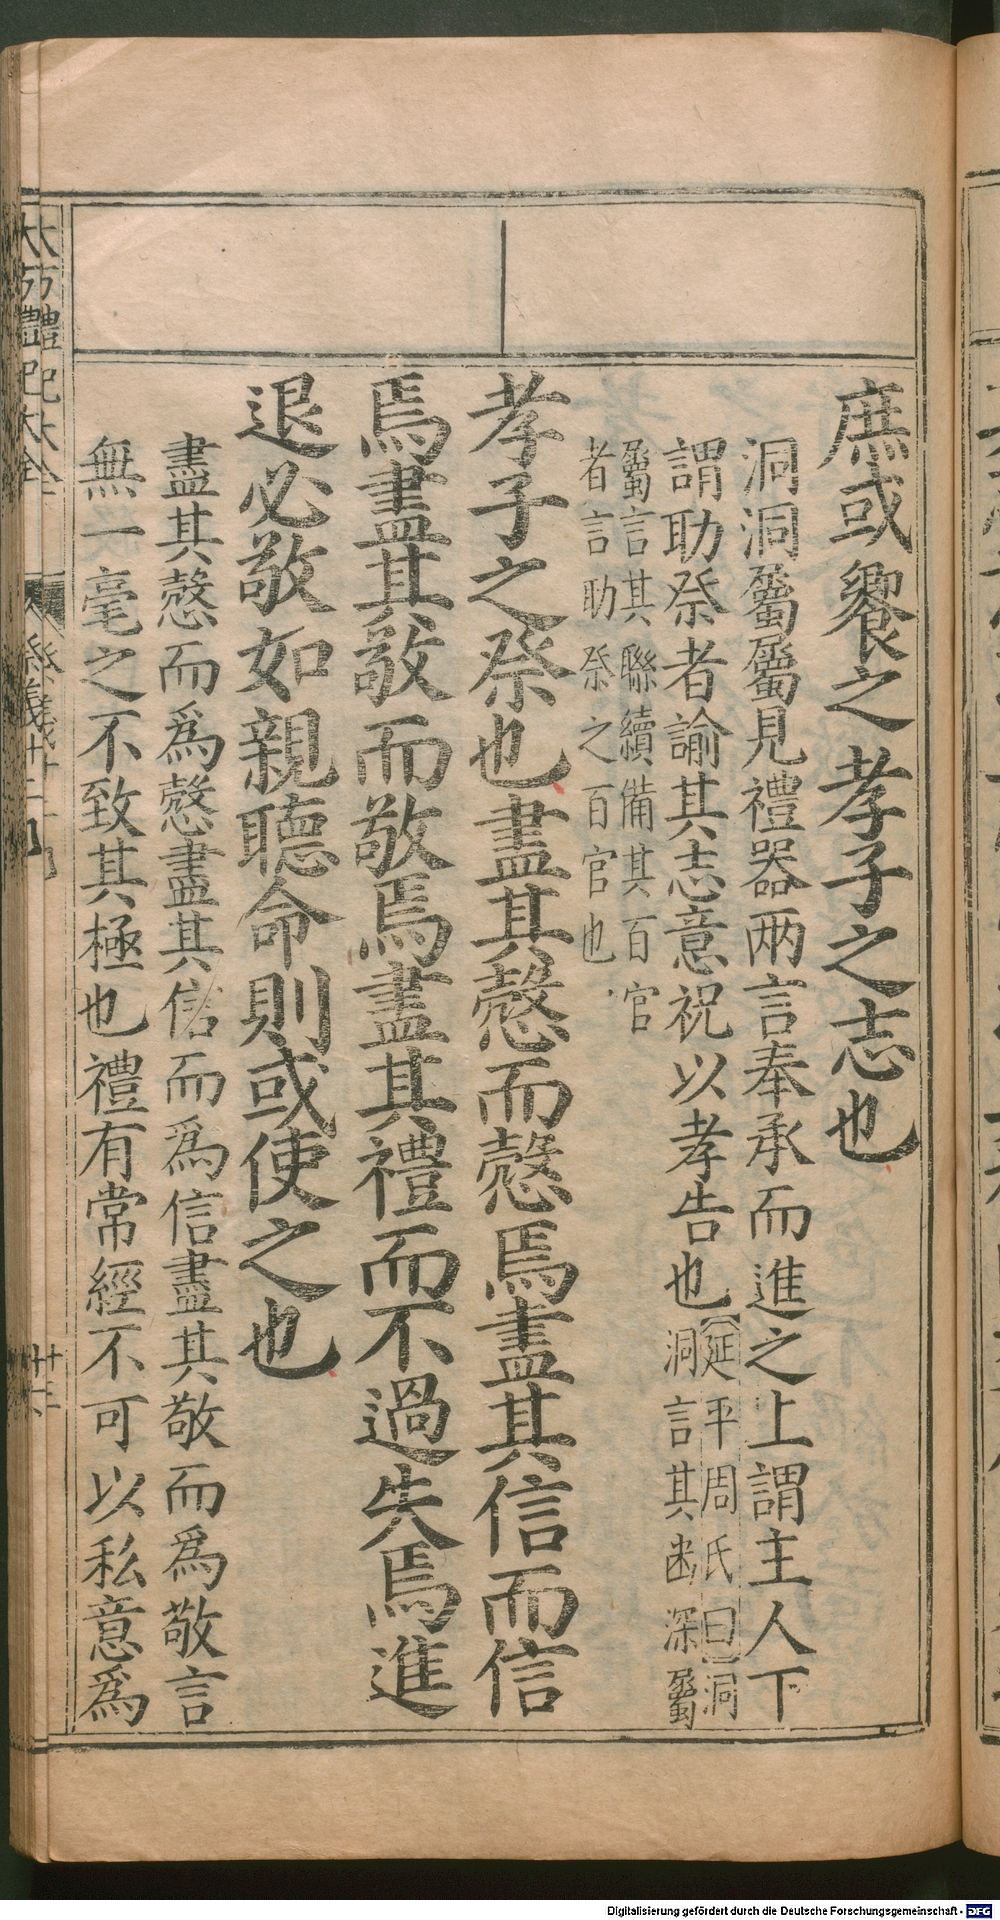 庶或饗之孝子之志也
洞洞屬屬見禮器兩言奉承而進之上謂主人下
謂助祭者諭其志意祝以孝告也
延平周氏曰洞
洞言其幽深屬
屬言其聯續備其百官
者言助祭之百官也
孝子之祭也盡其慤而慤焉盡其信而信
焉盡其敬而敬焉盡其禮而不過失焉進
退必敬如親聽命則或使之也
盡其慤而爲慤盡其信而爲信盡其敬而爲敬言
無一毫之不致其極也禮有常經不可以私意爲
大方禮記大全
祭義廿四
Digitalisierung gefördert durch die Deutsche Forschungsgemeinschaft - DFG